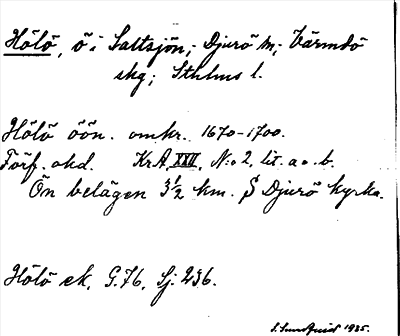 Hölö, ö i Saltsjön; Djurö sn; Värmdö
skg; Sthlms l.
Hölö öön. omkr. 1670-1700.
Förf. okd. KrA, XXII, N:o 2, lit. a o. b.
Ön belägen 3 1/2 km. S Djurö kyrka.
Hölö ek, G.76, Sj. 236.
S. Sundquist 1935.